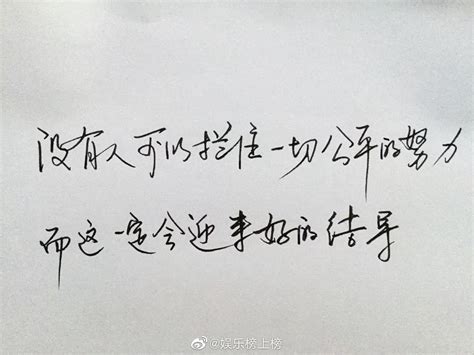 没有人可以拦住一切公平的努力
而这一定会迎来好的结果
@娱乐榜上榜